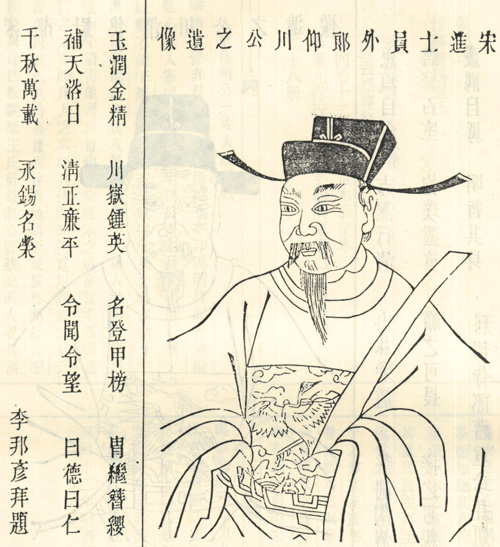 宋進士員外郎仰川公之遺像
玉潤金精 川嶽鍾英 名登甲榜 冑繼簪纓
補天浴日 清正廉平 令聞令望 曰德曰仁
千秋萬載 永錫名榮
李邦彥拜題